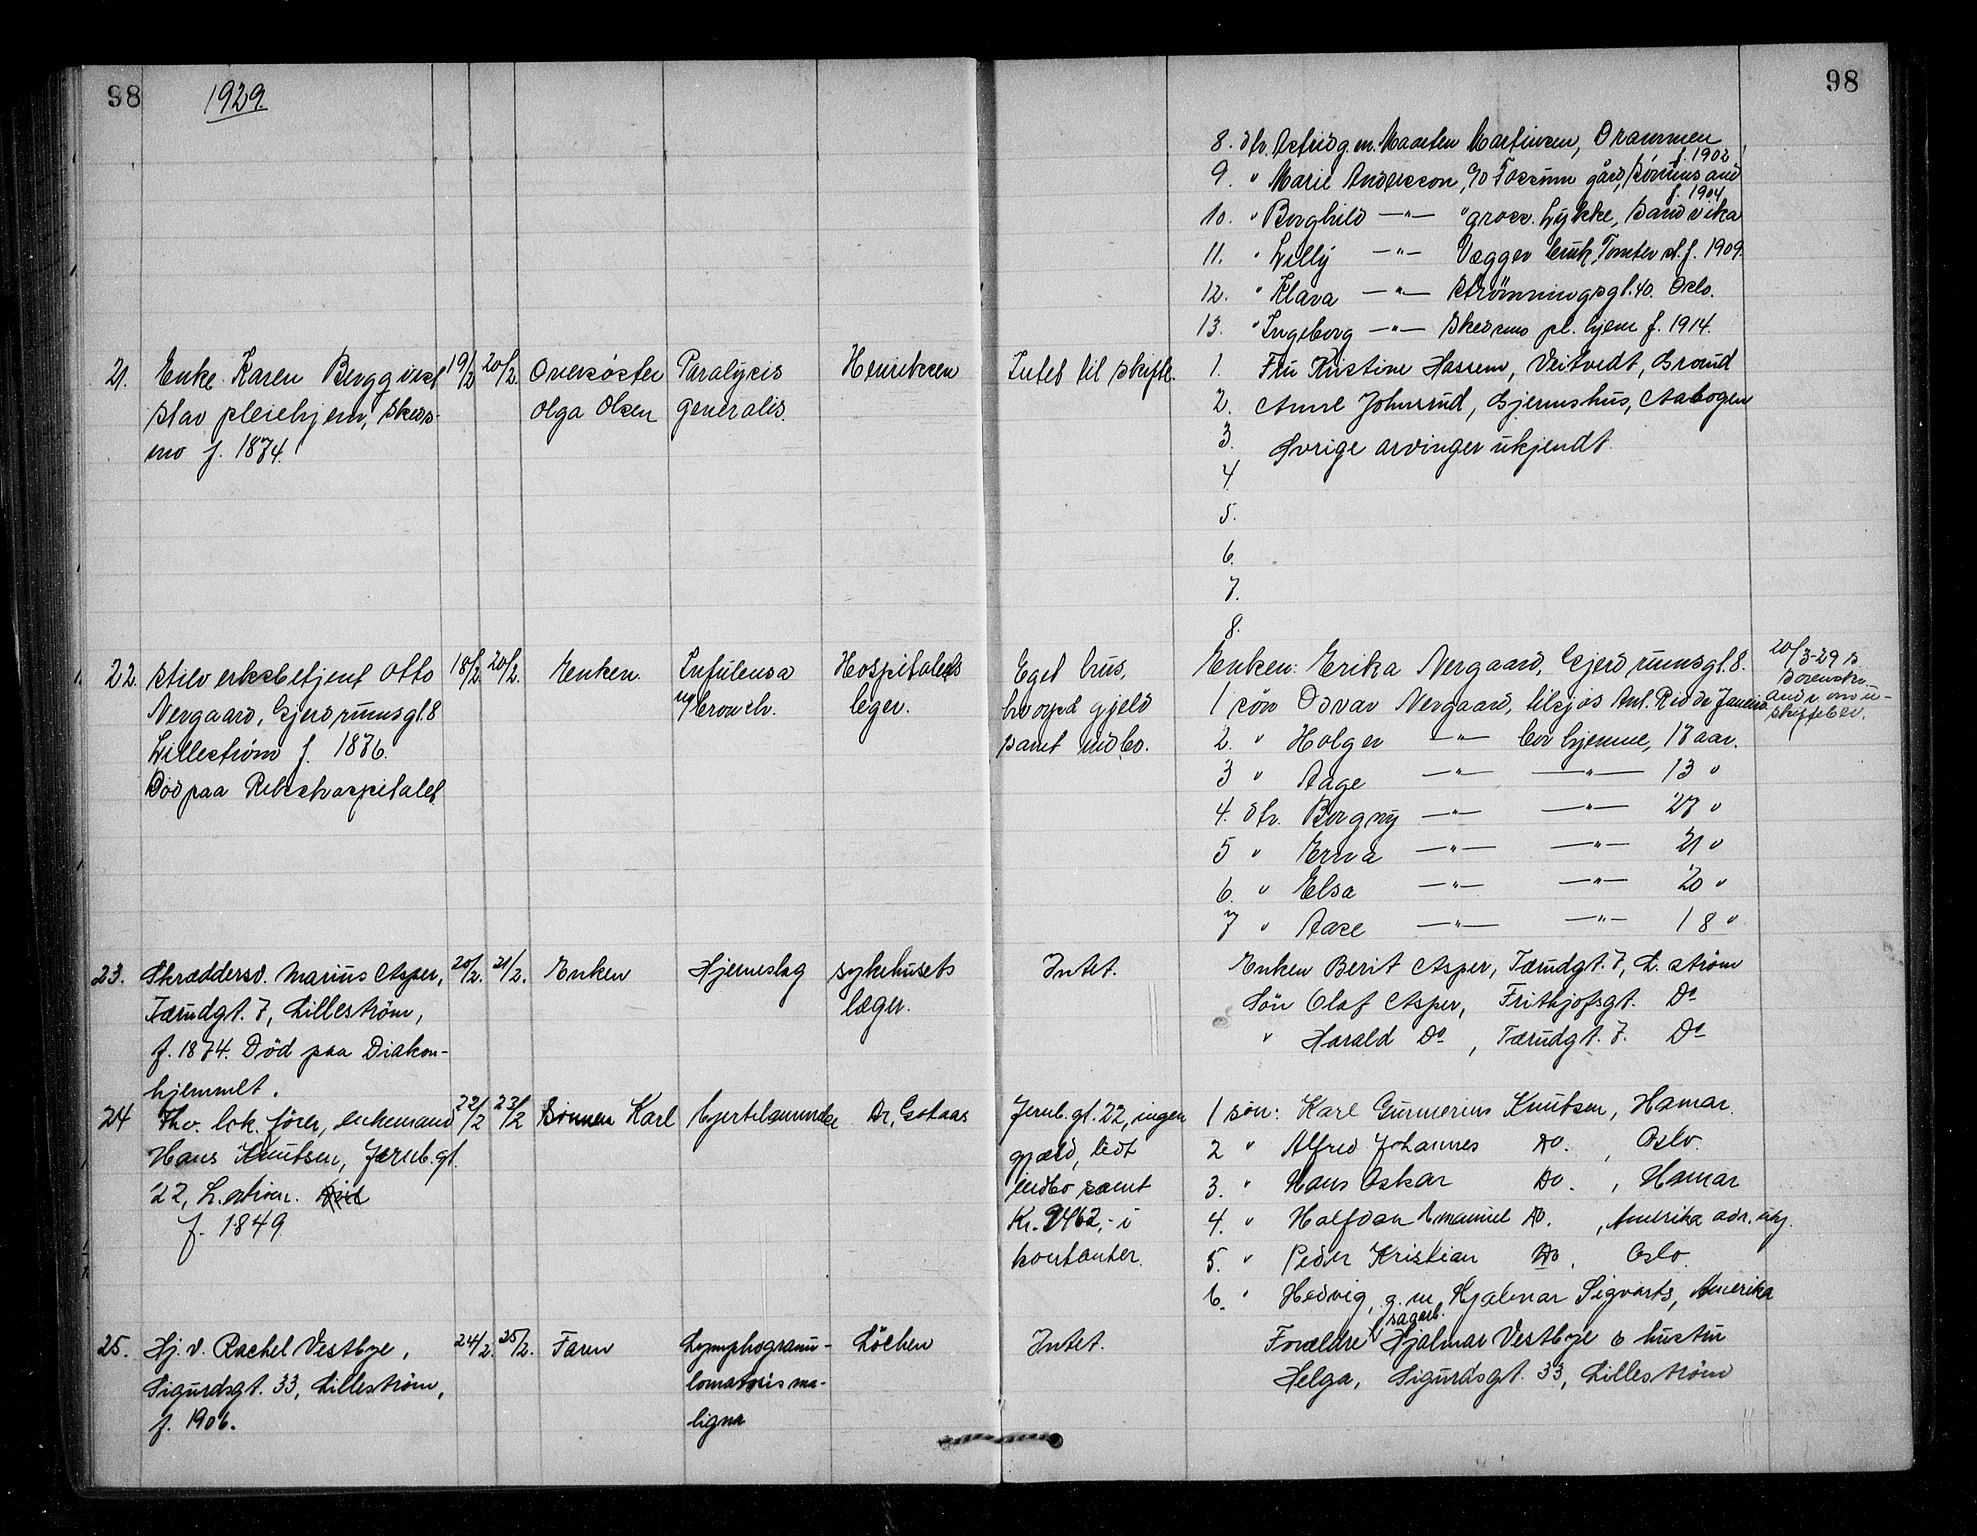 98
1929.
98
8. dtr. Astrid g.m. Maarten Martinsen, Drammen
f. 1902
9. " Marie Andersson, c/o Fossum gård,
f. 1904
10. " Borghild —"— " gross. Lykke, Sandvika
11. " Lilly —"— Vegger Tomter st. f. 1909.
12. " Klara —"— Strømmingsgt. 40. Oslo.
13. " Ingeborg —"— Skedsmo pl. hjem f. 1914.
21. Enke Karen Bergqvist
Stav pleiehjem, Skeds-
mo f. 1874.
19/2 20/2.
Oversöster
Olga Olsen
Paralysis
generalis.
Henriksen
Intet til skifte.
1. Fru Kristine Hassem, Veitvedt, Grorud
2. Anne Johnsrud, Gjermshus, Aabogen
3. Øvrige arvinger ukjendt.
4.
5.
6.
7.
8.
22. Otto
Nergaard, Gjerdrumsgt. 8
Lillestrøm f. 1876.
Död paa Rikshospitalet
18/2. 20/2.
Enken.
Infulensa
m/bronch.
Hospitalets
leger.
Eget hus,
hvorpå gjeld
samt indbo.
Enken: Erika Nergaard, Gjerdrumsgt. 8.
1 sön Odvar Nergaard, tilsjøs
2. " Holger —"— bor hjemme, 17 aar.
3 " Aage —"— —"— 13 "
4. dtr. Borgny —"— —"— 27 "
5 " Erna —"— —"— 21 "
6. " Elsa —"— —"— 20 "
7 " Aase —"— —"— 18 "
20/3-29 s.
Sorenskr.
uskiftebev.
23. Skræddersv. Marius Asper,
Tærudgt. 7, Lilleström,
f. 1874. Död paa Diakon-
hjemmet.
20/2. 21/2.
Enken
Hjerneslag
sykehusets
læger.
Intet.
Enken Berit Asper, Tærudgt. 7, L. ström
Sön Olaf Asper, Frithjofsgt. Do
" Harald Do, Tærudgt. 7. Do
24 Fhv. lok. förer, enkemand
Hans Knutsen, Jernb. gt.
22, L. ström.
f. 1849.
22/2 23/2
Sönnen Karl
hjertelammelse
Dr. Gotaas
Jernb. gt. 22, ingen
gjæld, lidt
indbo samt
Kr. 9462,- i
kontanter.
1 sön: Karl Gunnerius Knutsen, Hamar.
2 " Alfred Johannes Do. , Oslo.
3. " Hans Oskar Do. , Hamar
4. " Halfdan Emanuel Do. , Amerika adr. ukj.
5. " Peder Kristian Do , Oslo.
6. " Hedvig, g. m. Hjalmar Sigvarts, Amerika
25. Pj. v. Rachel Vestbye,
Sigurdsgt. 33, Lilleström,
f. 1906.
24/2. 25/2.
Faren
Lymphogranu-
lomatosis ma-
ligna
Löchen
Intet.
sagarb.
Forældre Hjalmar Vestbye o hustru
Helga, Sigurdsgt. 33, Lilleström